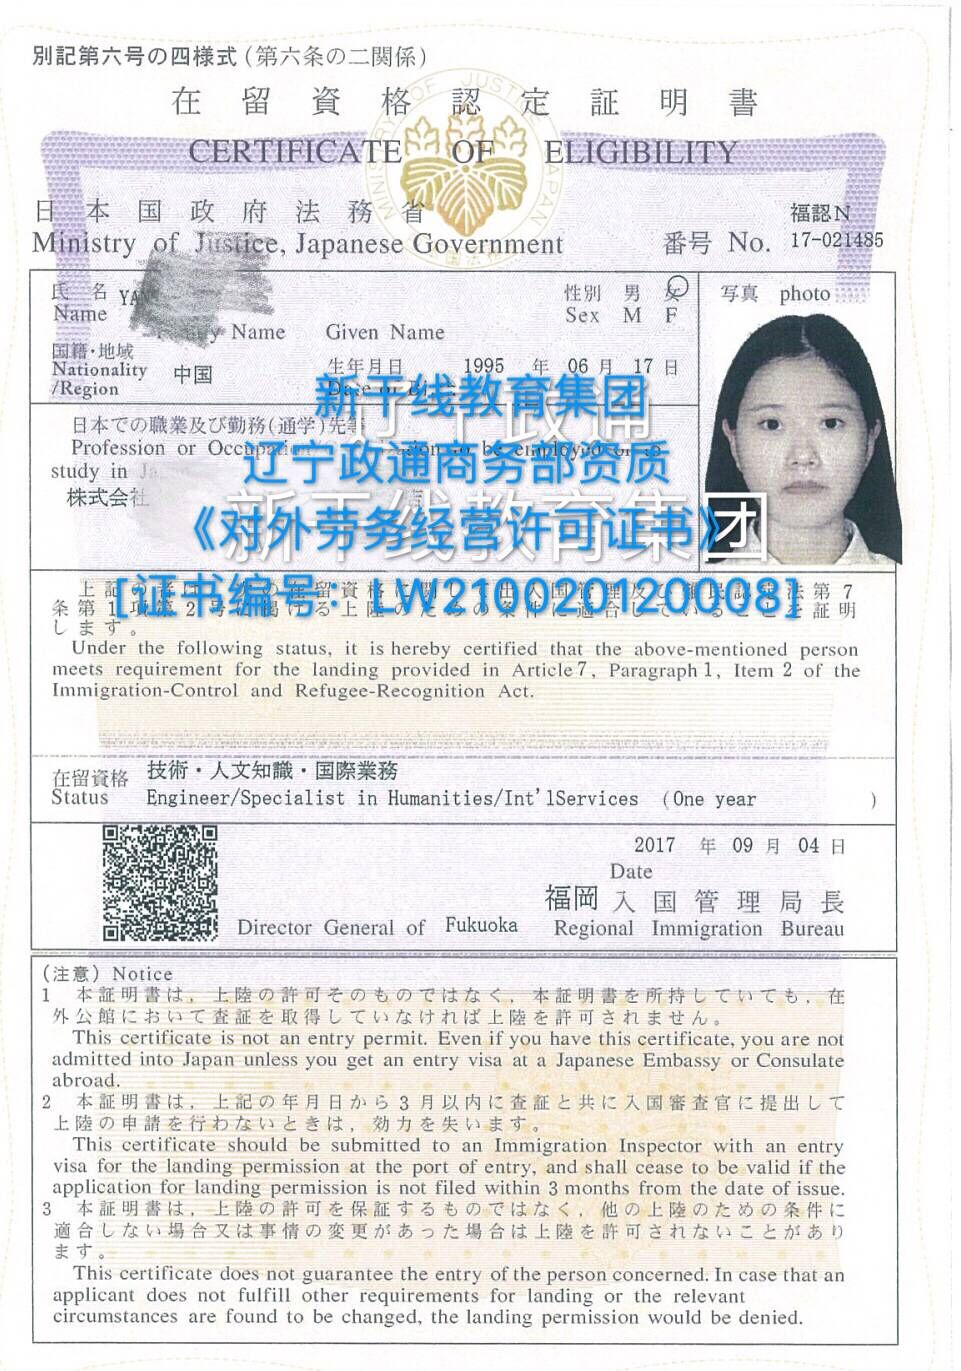 別記第六号の四様式(第六条の二関係)
在留資格認定証明書
CERTIFICATE OF ELIGIBILITY
日本国政府法務省
Ministry of Justice, Japanese Government
福認N
番号 No. 17-021485
氏 名 YAN
Name
Name Given Name
性別 男 女
Sex M F
写真 photo
国籍・地域
Nationality
/Region
中国
生年月日 1995 年 06 月 17 日
新干线教育集团
辽宁政通
日本での職業及び勤務(通学)先等
Profession or
study in
辽宁政通商务部资质
株式会社
《对外劳务经营许可证书》
新干线教育集团
[证书编号:LW210020120008]
条第1項第2号に掲げる上陸のための条件に適合していることを証明
します。
Under the following status, it is hereby certified that the above-mentioned person
meets requirement for the landing provided in Article 7, Paragraph 1, Item 2 of the
Immigration-Control and Refugee-Recognition Act.
在留資格 技術・人文知識・国際業務
Status Engineer/Specialist in Humanities/Int'lServices (One year )
2017 年 09 月 04 日
Date
福岡 入国管理局長
Director General of Fukuoka Regional Immigration Bureau
(注意) Notice
1 本証明書は、上陸の許可そのものではなく、本証明書を所持していても、在
外公館において査証を取得していなければ上陸を許可されません。
This certificate is not an entry permit. Even if you have this certificate, you are not
admitted into Japan unless you get an entry visa at a Japanese Embassy or Consulate
abroad.
2 本証明書は、上記の年月日から3月以内に査証と共に入国審査官に提出して
上陸の申請を行わないときは、効力を失います。
This certificate should be submitted to an Immigration Inspector with an entry
visa for the landing permission at the port of entry, and shall cease to be valid if the
application for landing permission is not filed within 3 months from the date of issue.
3 本証明書は、上陸の許可を保証するものではなく、他の上陸のための条件に
適合しない場合又は事情の変更があった場合は上陸を許可されないことがあり
ます。
This certificate does not guarantee the entry of the person concerned. In case that an
applicant does not fulfill other requirements for landing or the relevant
circumstances are found to be changed, the landing permission would be denied.